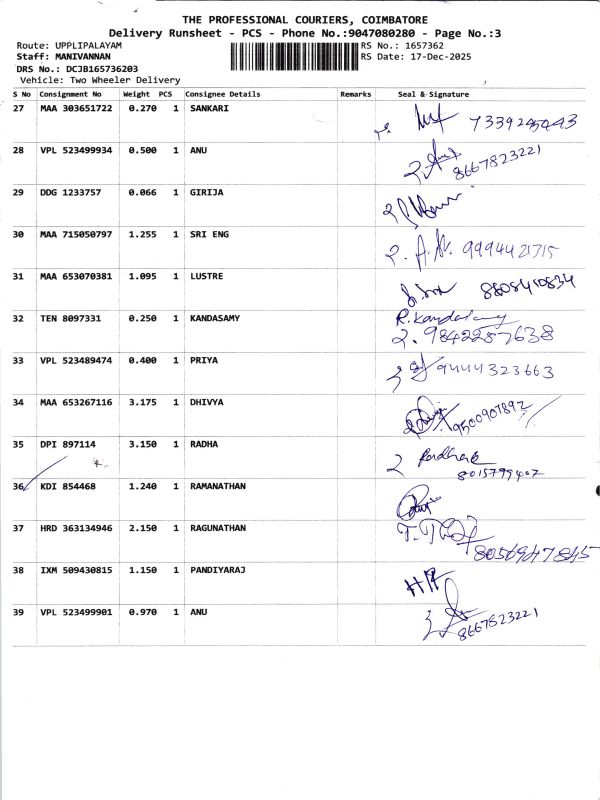 THE PROFESSIONAL COURIERS, COIMBATORE
Delivery Runsheet - PCS - Phone No.:9047080280 - Page No.:3
Route: UPPLIPALAYAM
RS No.: 1657362
Staff: MANIVANNAN
RS Date: 17-Dec-2025
DRS No.: DCJB165736203
Vehicle: Two Wheeler Delivery
S No Consignment No Weight PCS Consignee Details Remarks Seal & Signature
27 MAA 303651722 0.270 1 SANKARI
28 VPL 523499934 0.500 1 ANU 8667823221
29 DDG 1233757 0.066 1 GIRIJA
30 MAA 715050797 1.255 1 SRI ENG 9994421715
31 MAA 653070381 1.095 1 LUSTRE 8808410834
32 TEN 8097331 0.250 1 KANDASAMY R.Kandasamy
2. 9842257638
33 VPL 523489474 0.400 1 PRIYA 9444323663
34 MAA 653267116 3.175 1 DHIVYA 9500907892
35 DPI 897114 3.150 1 RADHA
8015799407
36 KDI 854468 1.240 1 RAMANATHAN
37 HRD 363134946 2.150 1 RAGUNATHAN
8056947845
38 IXM 509430815 1.150 1 PANDIYARAJ
39 VPL 523499901 0.970 1 ANU 8667823221